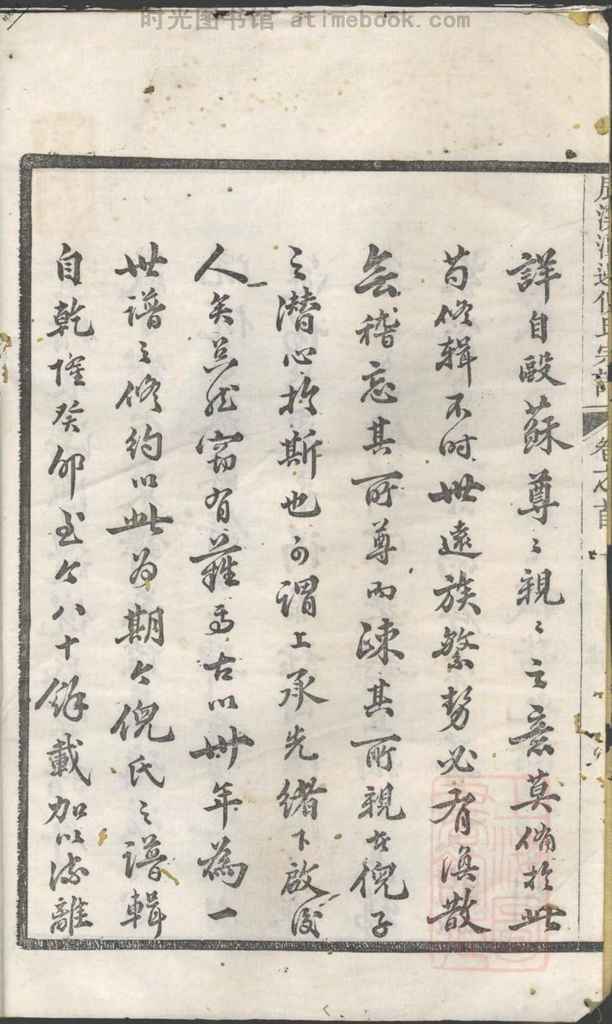 时光图书馆 atimebook.com
詳自歐蘇尊〻親〻之意莫備於此
苟修輯不時世遠族繁勢必有渙散
無稽忘其所尊而疎其所親者倪子
之潛心於斯也可謂上承先緒下啟後
人矣然竊有難焉古以卅年為一
世譜之修約以此為期今倪氏之譜輯
自乾隆癸卯至今八十餘載加以流離
氏宗譜
卷之首